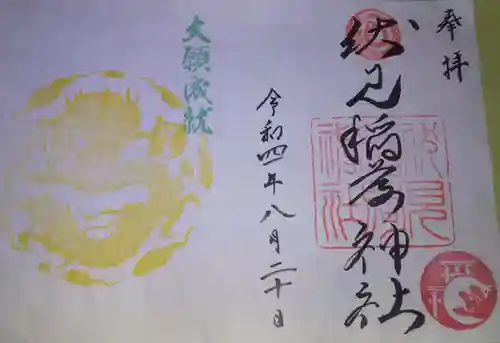 奉拝
伏見稲荷神社
令和四年八月二十日
大願成就